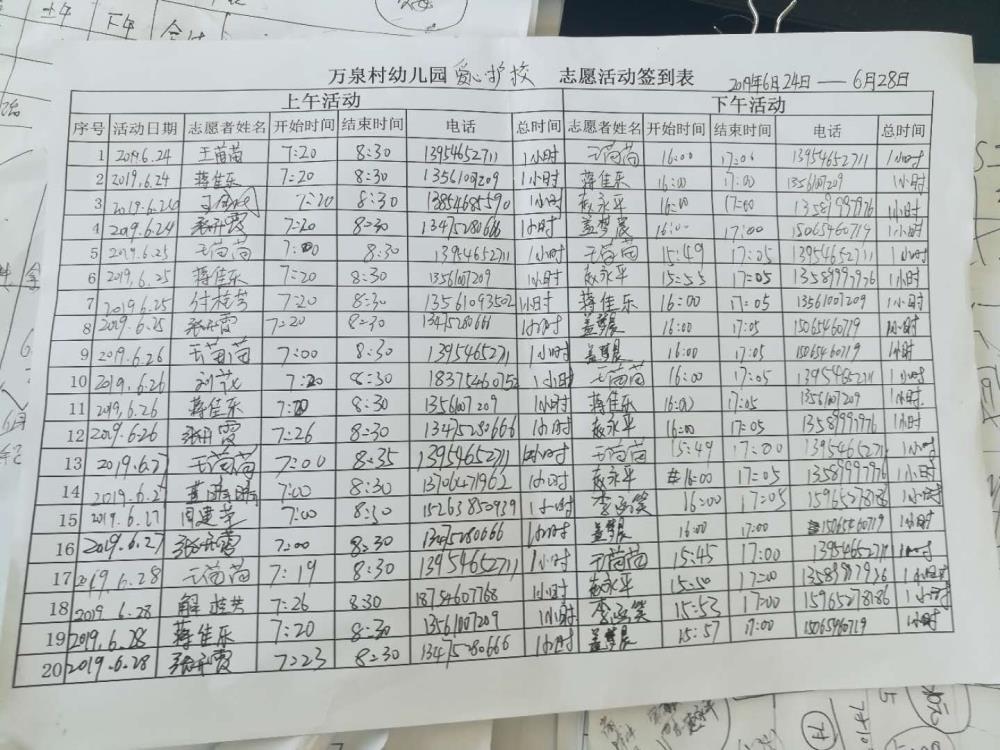 万泉村幼儿园 爱心护校 志愿活动签到表 2019年6月24日——6月28日
上午活动 下午活动
序号 活动日期 志愿者姓名 开始时间 结束时间 电话 总时间 志愿者姓名 开始时间 结束时间 电话 总时间
1 2019.6.24 王苗苗 7:20 8:30 13954652711 1小时 王苗苗 16:00 17:06 13954652711 1小时
2 2019.6.24 蒋佳乐 7:20 8:30 13561007209 1小时 蒋佳乐 16:00 17:00 13561007209 1小时
3 2019.6.24 7:20 8:30 13854685590 1小时 赵永平 16:00 17:00 13589997976 1小时
4 2019.6.24 7:20 8:30 13475280666 1小时 盖梦晨 16:00 17:00 15065460719 1小时
5 2019.6.25 王苗苗 7:00 8:30 13954652711 1小时 王苗苗 15:49 17:05 13954652711 1小时
6 2019.6.25 蒋佳乐 7:20 8:30 13561007209 1小时 赵永平 15:55 17:05 13589997976 1小时
7 2019.6.25 付桂芳 7:20 8:30 13561093502 1小时 蒋佳乐 16:00 17:05 13561007209 1小时
8 2019.6.25 7:20 8:30 13475280666 1小时 盖梦晨 16:00 17:05 15065460719 1小时
9 2019.6.26 王苗苗 7:00 8:30 13954652711 1小时 盖梦晨 16:00 17:05 15065460719 1小时
10 2019.6.26 7:20 8:30 18375460752 1小时 王苗苗 16:00 17:05 13954652711 1小时
11 2019.6.26 蒋佳乐 7:20 8:30 13561007209 1小时 蒋佳乐 16:00 17:05 13561007209 1小时
12 2019.6.26 7:26 8:30 13475280666 1小时 赵永平 16:00 17:05 13589997976 1小时
13 2019.6.27 王苗苗 7:00 8:35 13954652711 1小时 王苗苗 15:49 17:00 13954652711 1小时
14 2019.6.27 7:00 8:30 13706471962 1小时 赵永平 16:00 17:05 13589997976 1小时
15 2019.6.27 周建华 7:00 8:30 15263850939 1小时 李涵笑 16:00 17:05 15965278186 1小时
16 2019.6.27 7:00 8:30 13475280666 1小时 盖梦晨 16:00 17:00 15065460719 1小时
17 2019.6.28 王苗苗 7:19 8:30 13954652711 1小时 王苗苗 15:45 17:00 13954652711 1小时
18 2019.6.28 7:26 8:30 18754607768 1小时 赵永平 15:50 17:00 13589997976 1小时
19 2019.6.28 蒋佳乐 7:20 8:30 13561007209 1小时 李涵笑 15:53 17:00 15965278186 1小时
20 2019.6.28 7:23 8:30 13475280666 1小时 盖梦晨 15:57 17:00 15065460719 1小时